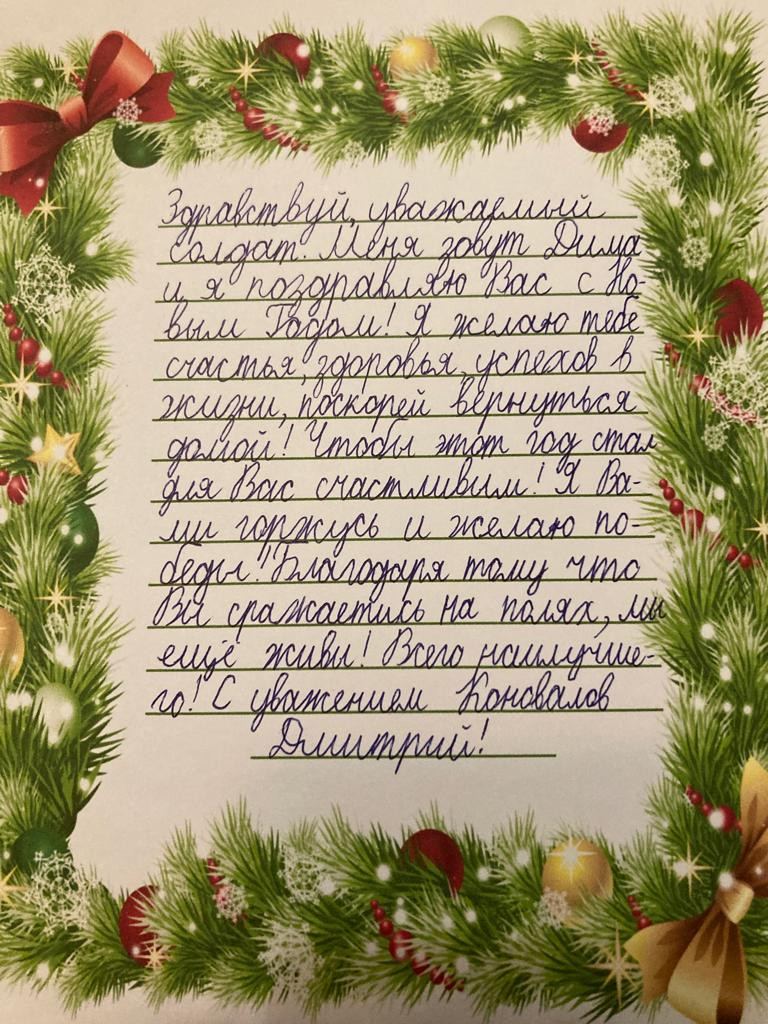 Здравствуй, уважаемый
солдат. Меня зовут Дима
и я поздравляю Вас с Но-
вым Годом! Я желаю тебе
счастья, здоровья, успехов в
жизни, поскорей вернуться
домой! Чтобы этот год стал
для Вас счастливым! Я Ва-
ми горжусь и желаю по-
беды! Благодаря тому что
Вы сражаетись на полях, мы
ещё живы! Всего наилучше-
го! С уважением Коновалов
Дмитрий!